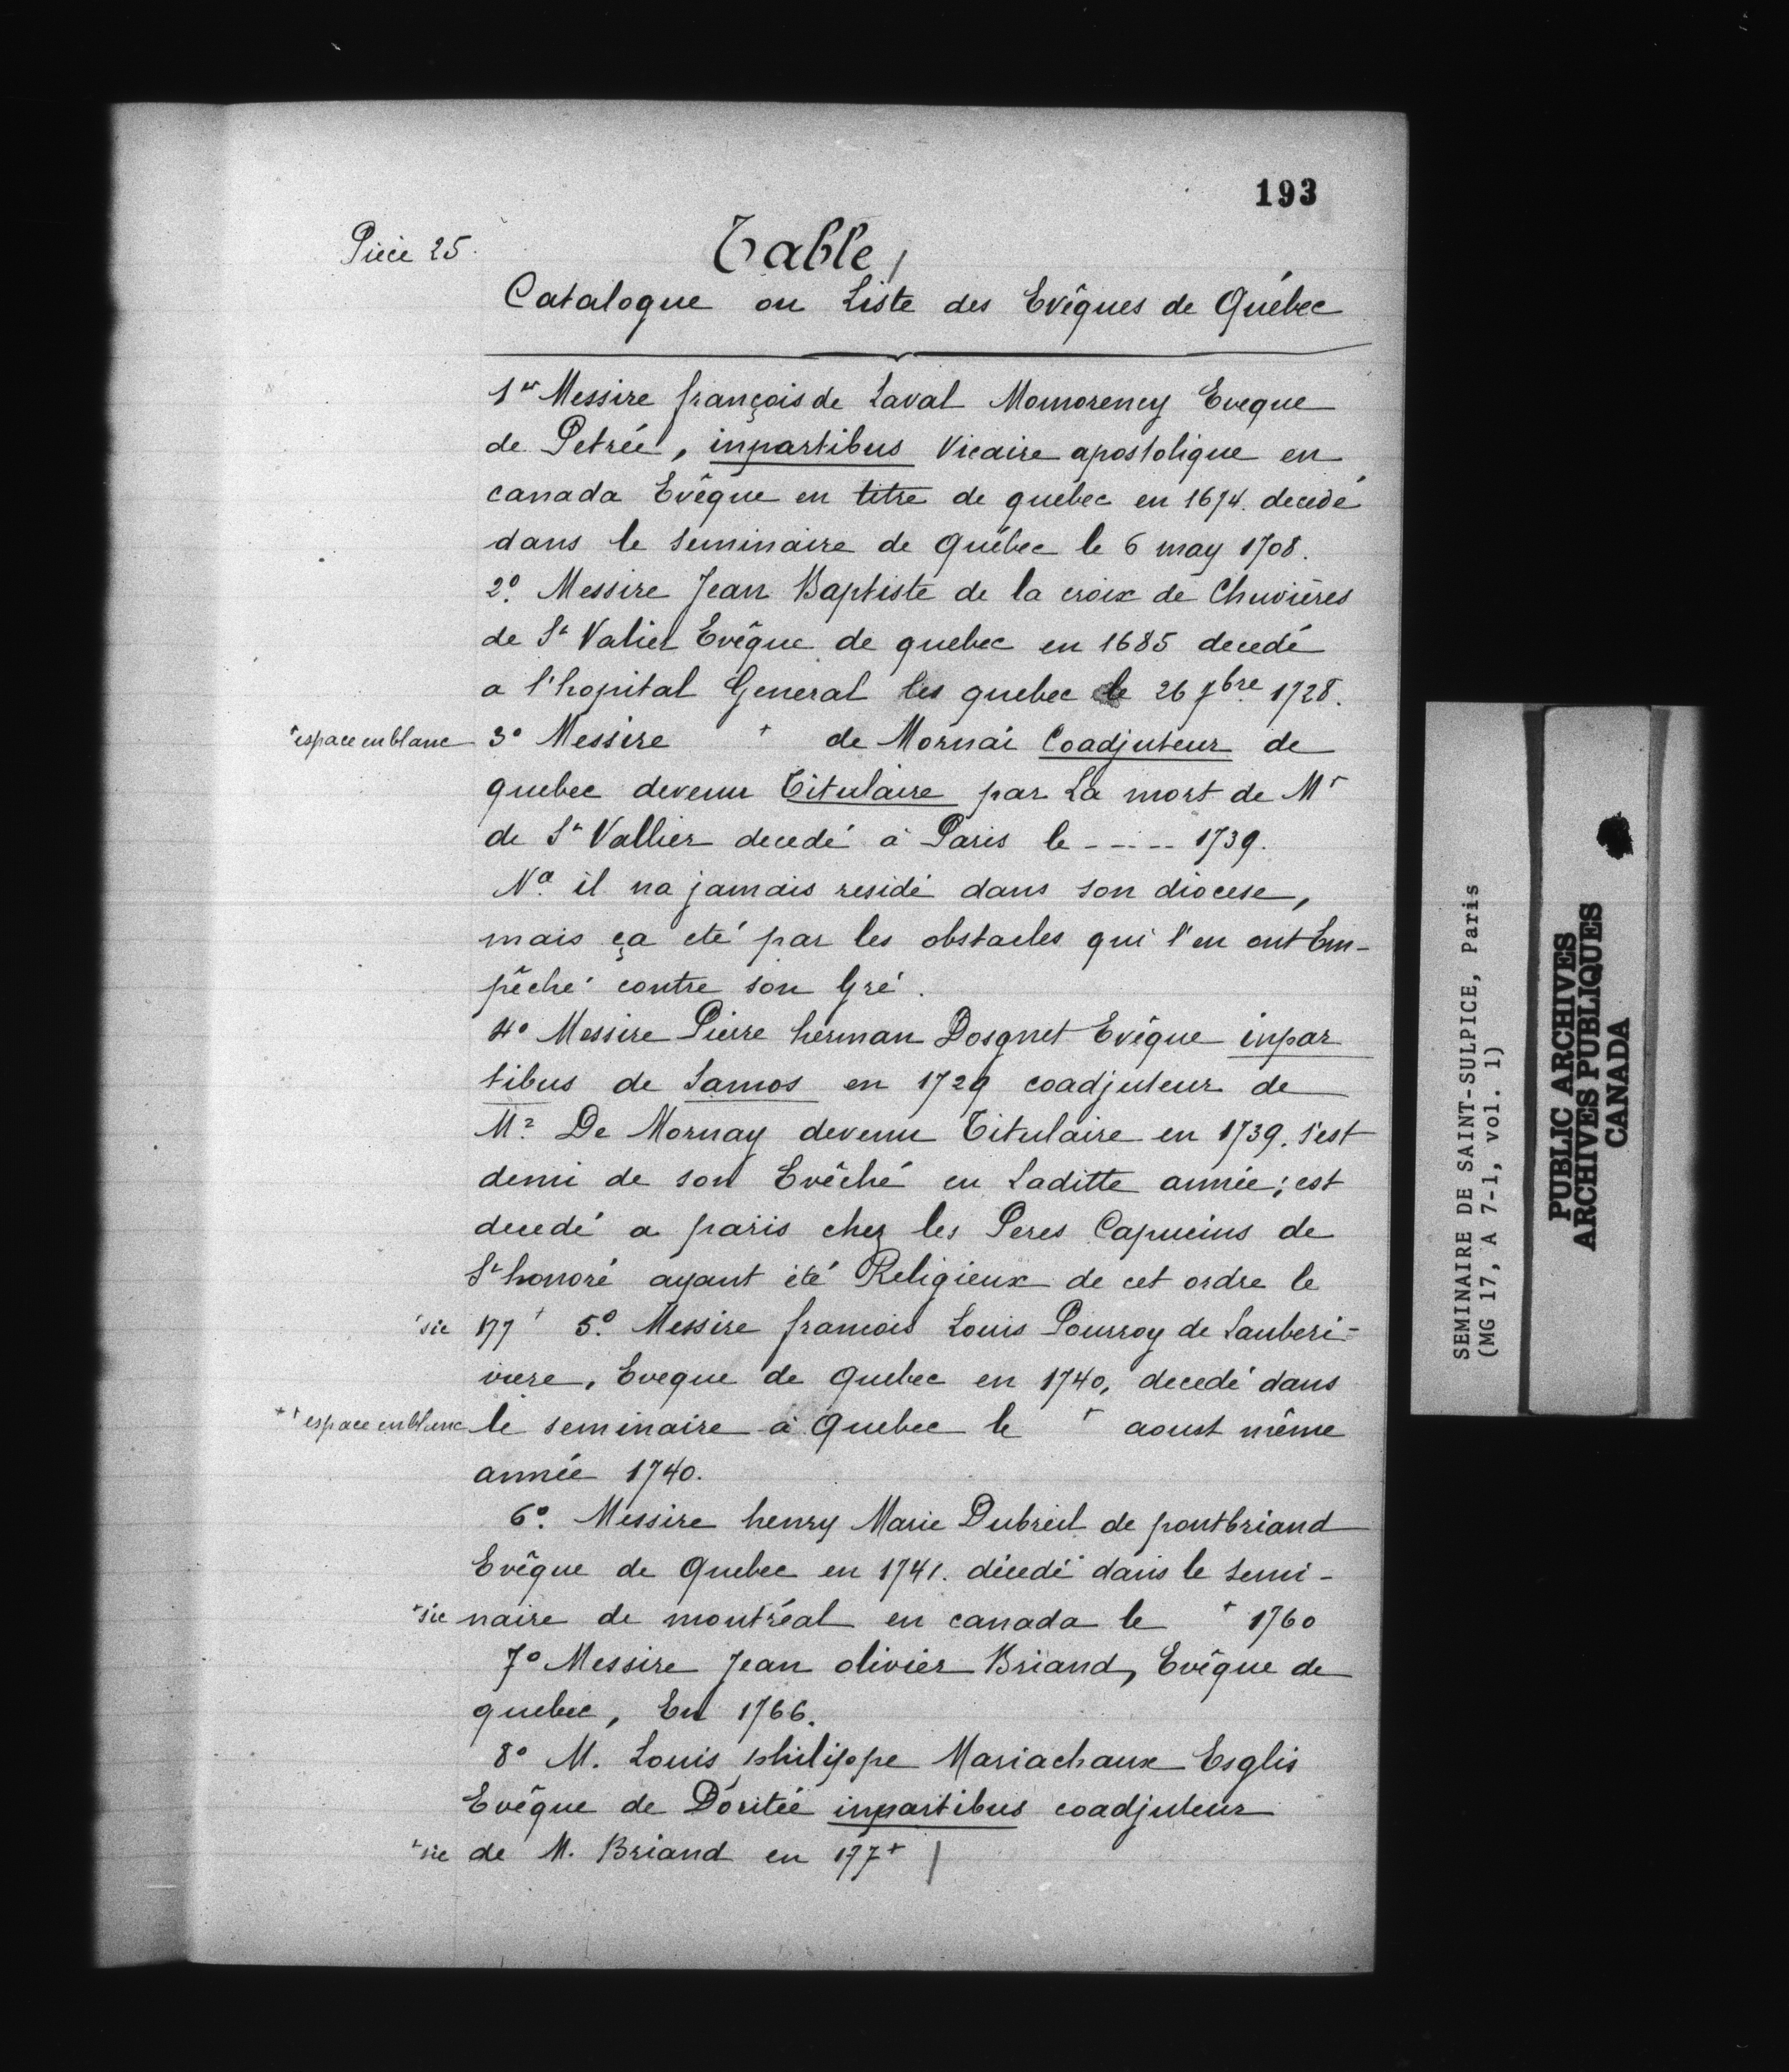 193
Pièce 25.
Table,
Catalogue ou Liste des Evêques de Québec
1er Messire françois de Laval Momorency Eveque
de Petrée, inpartibus Vicaire apostolique en
canada Evêque en titre de quebec en 1674. decedé
dans le seminaire de Québec le 6 may 1708.
2º. Messire Jean Baptiste de la croix de Chuvières
de St Valier Evêque de quebec en 1685 decedé
a l'hopital General les quebec le 26 7bre 1728.
+espace en blanc 3º Messire + de Mornai Coadjuteur de
quebec devenu Titulaire par La mort de Mr
de St Vallier decedé à Paris le ----- 1739.
Na il na jamais residé dans son diocese,
mais ça eté par les obstacles qui l'en ont Em-
pêché contre son Gré.
4º Messire Pierre herman Dosquet Evêque inpar
tibus de Samos en 1729 coadjuteur de
Mr. De Mornay devenu Titulaire en 1739. s'est
demi de son Evêché en Laditte année; est
decedé a paris chez les Peres Capucins de
St honoré ayant été Religieux de cet ordre le
+sic 177+ 5º. Messire francois Louis Pourroy de Lauberi-
viere, Eveque de Quebec en 1740, decedé dans
++ espace en blanc le seminaire à Quebec le + aoust même
année 1740.
6º. Messire henry Marie Dubreil de pontbriand
Evêque de Quebec en 1741. décedé dans le semi-
+sic naire de montréal en canada le + 1760
7º Messire Jean olivier Briand, Evêque de
quebec, En 1766.
8º M. Louis philippe Mariachaux Esglis
Evêque de Doritée inpartibus coadjuteur
+sic de M. Briand en 177+ /
SEMINAIRE DE SAINT-SULPICE, Paris
(MG 17, A 7-1, vol. 1)
PUBLIC ARCHIVES
ARCHIVES PUBLIQUES
CANADA